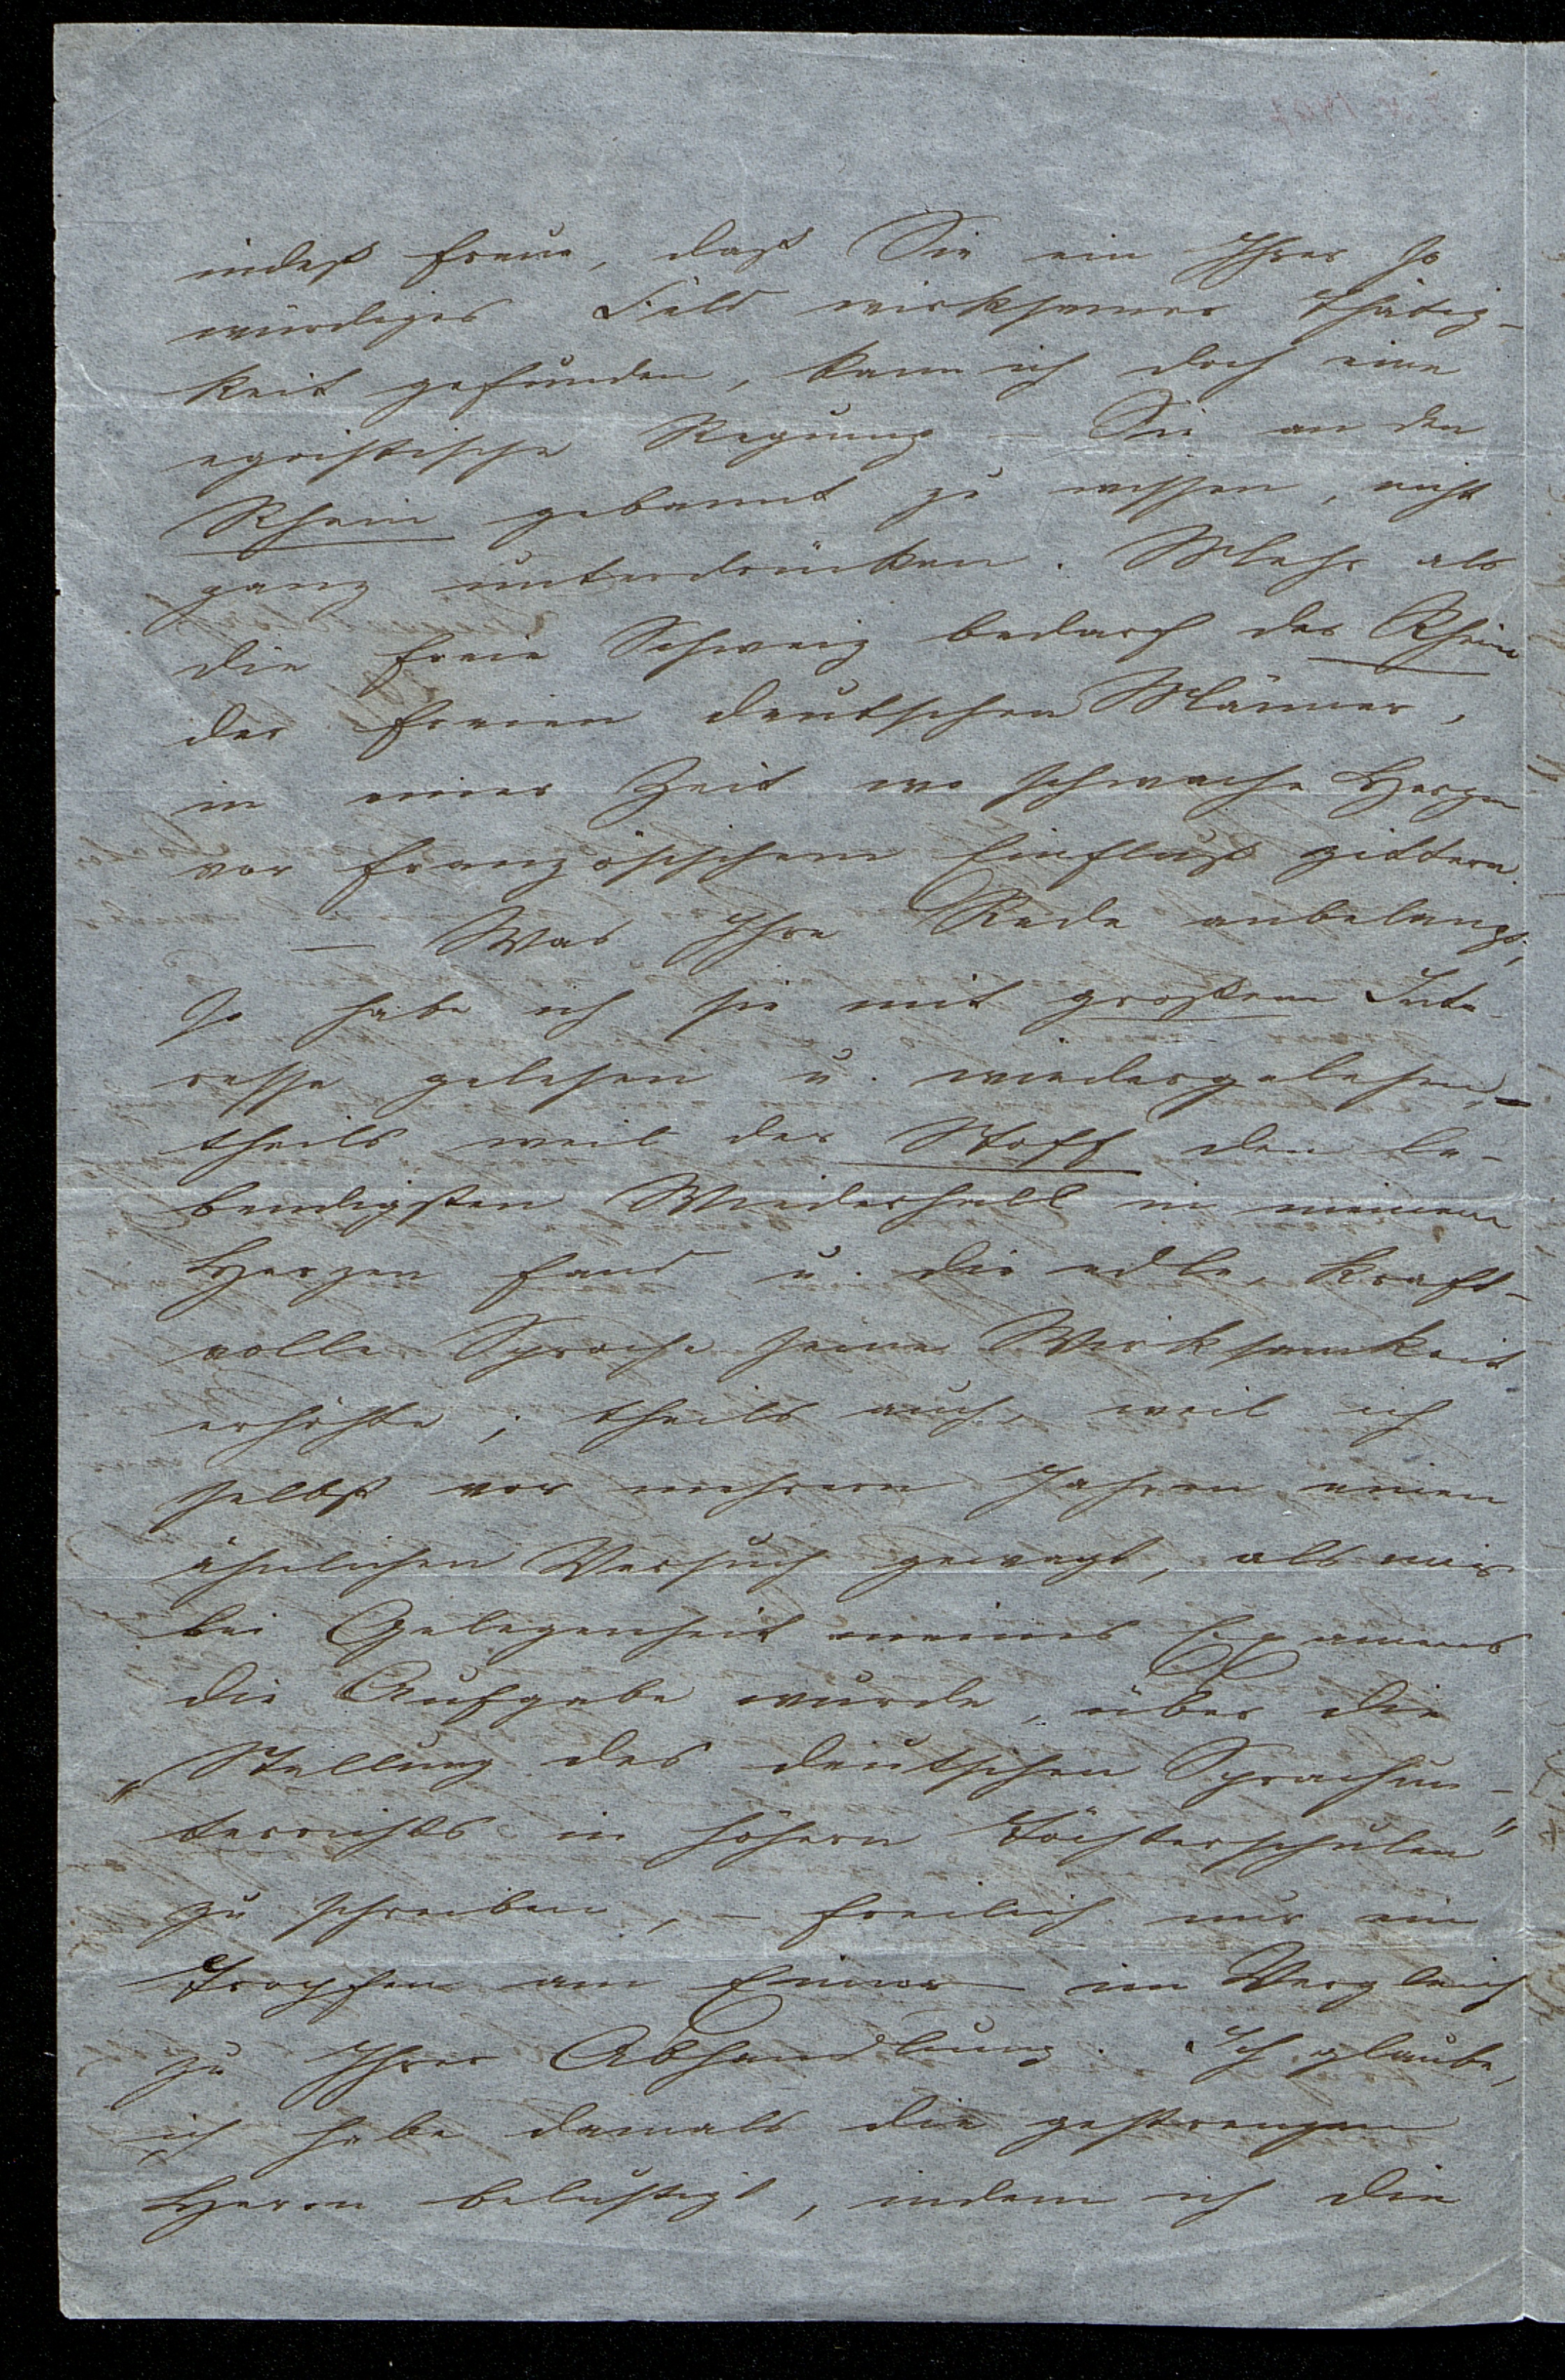 indeß freue, daß Sie ein Ihrer so
würdiges Feld wirksamer Thätig-
keit gefunden, kann ich doch eine
egoistische Regung – Sie an den
Rhein gebannt zu wissen, nicht
ganz unterdrücken. Mehr als
die freie Schweiz bedarf der Rhein
der freien deutschen Männer,
in einer Zeit wo schwache Herzen
vor französischem Einfluß zittern.
– Was Ihre Rede anbelangt,
so habe ich sie mit großem Inte-
resse gelesen u. wiedergelesen, –
theils weil der Stoff den le-
bendigsten Wiederhall in meinem
Herzen fand u. die edle, kraft-
volle Sprache seine Wirksamkeit
erhöhte; theils auch, weil ich
selbst vor mehrern Jahren einen
ähnlichen Versuch gewagt, als mir
bei Gelegenheit meines Examens
die Aufgabe wurde, über die
„Stellung des deutschen Sprachun-
terrichts in höhern Töchterschulen"
zu schreiben, – freilich nur ein
Tropfen am Eimer im Vergleich
zu Ihrer Abhandlung. Ich glaube,
ich habe damals die gestrengen
Herrn belustigt, indem ich die